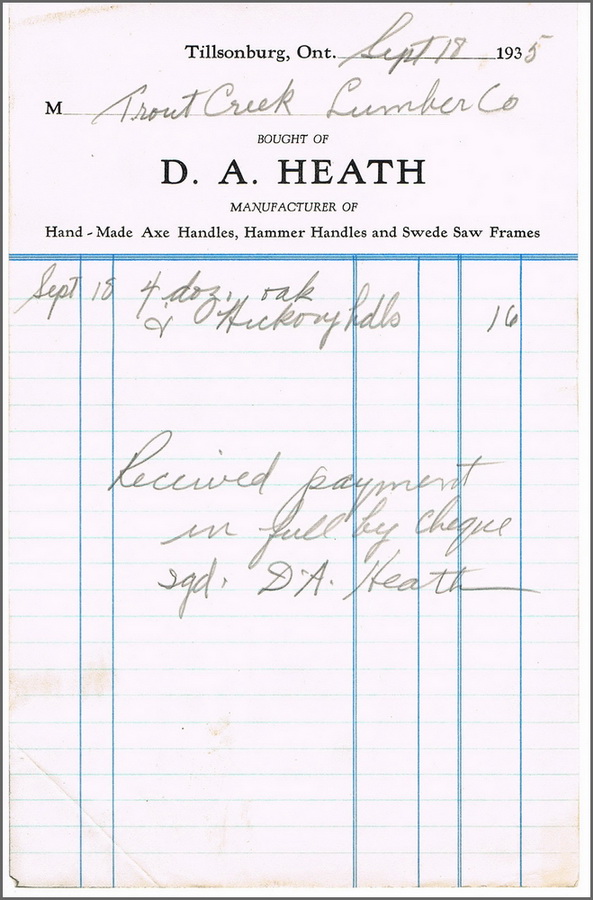 Tillsonburg, Ont. Sept 18 1935
M Trout Creek Lumber Co
BOUGHT OF
D. A. HEATH
MANUFACTURER OF
Hand-Made Axe Handles, Hammer Handles and Swede Saw Frames
Sept 18 4 doz. oak
& Hickory hdls 16
Received payment
in full by cheque
sgd. D.A. Heath